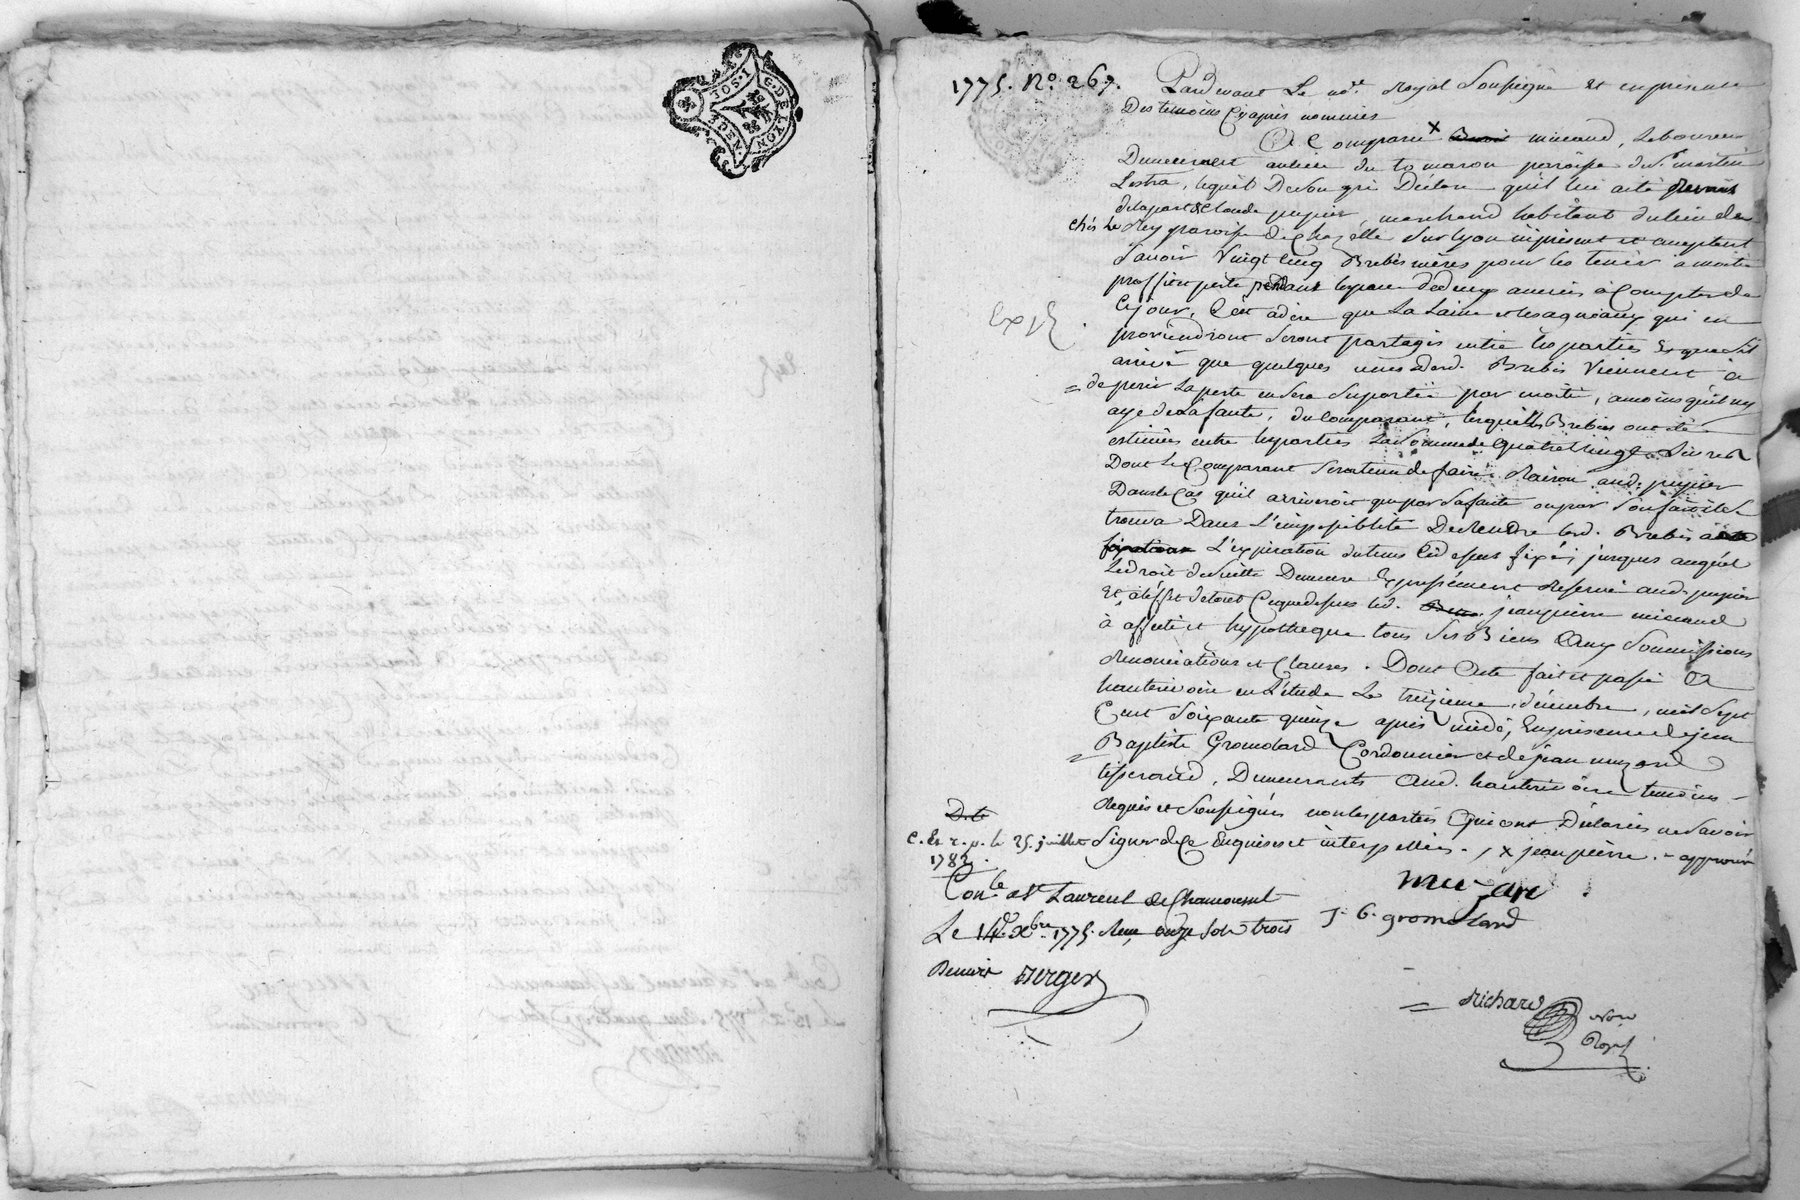 JOS. I
3 DEN.
G. DE LYON
1775. No. 267.
Pardevant Le no.re Royal Soussigné et en presence
Des temoins Cy après nommés
A Comparu x Benoit micaud, Laboureur
Demeurant au lieu du tomaron parroisse de St. martin
Lestra, lequel De son gré Déclare qu'il lui a été Remis
de la part de Claude pupier, marchand habitant du lieu de
chés Le Rey parroisse De chazelle sur Lyon icy présent et acceptant
Savoir Vingt Cinq Brebis mères pour les tenir a moitié
proffit et perte pendant l'espace de deux années à Compter de
Ce jour, C'est à dire que La Laine et les agneaux qui en
proviendront seront partagés entre les parties Et que s'il
arrive que quelques unes desd. Brebis Viennent à
= deperir La perte en sera suportée par moitié, a moins qu'il n'y
aye de La faute, du Comparant, lesquelles Brebis ont été
estimées entre les parties La Somme de quatre Vingt Livres
Dont Le Comparant sera tenu de faire Raison aud. pupier
Dans le Cas qu'il arriveroit que par sa faute ou par son fait il se
trouva Dans L'impossibilité De Rendre lesd. Brebis à
L'expiration du tems Cy dessus fixé; jusques auquel
Le droit de suitte Demeure Expressément Reservé aud. pupier
Et à l'effet de tout Ce que dessus led. jean pierre micaud
à affecté et hypothequé tous ses Biens Aux Soumissions
Renonciations et Clauses. Dont Acte fait et passé à
hauterivoire en L'étude Le treizieme décembre, mil Sept
Cent Soixante quinze après midi, En presence de jean
= Baptiste Gromolard Cordonnier et de jean muzard
tisserand, Demeurants Aud. hauterivoire temoins
Requis et Soussignés non les parties Qui ont Déclarées ne Savoir
Signer de Ce Enquises et interpellées. / x jean pierre. - approuvé
Exp.é
C. Et r. p. le 25. juillet
1782.
Con.lé a St Laurent de Chamousset
Le 14. Xbre. 1775. Reçu onze Sols trois
Deniers Berger
muzard
J. B. gromolard
= Richard
Not.re
Royal